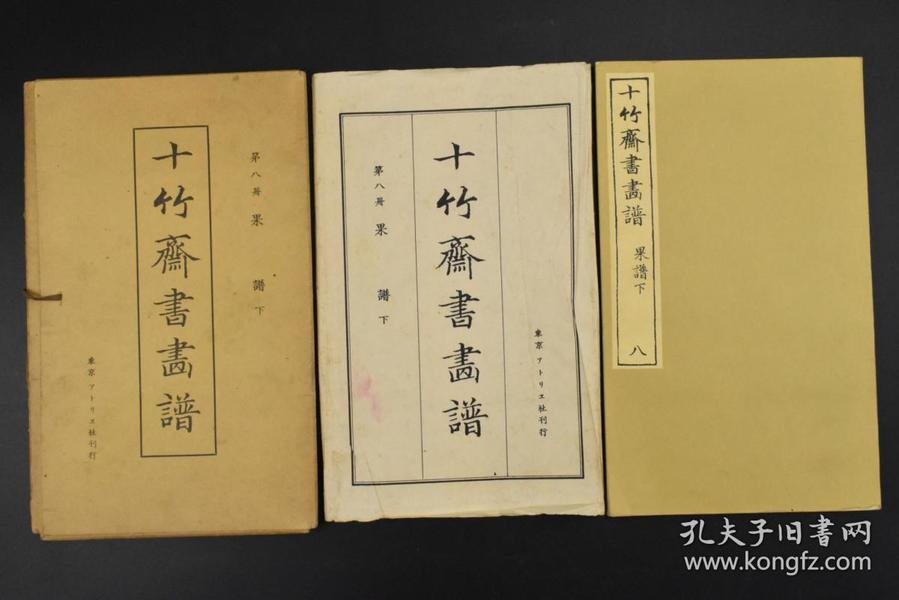 第八冊 果 譜 下
十竹齋書畫譜
東京 アトリエ社刊行
十竹齋書畫譜
第八冊 果 譜 下
東京 アトリエ社刊行
十竹齋書畫譜 果譜下 八
孔夫子旧书网
www.kongfz.com